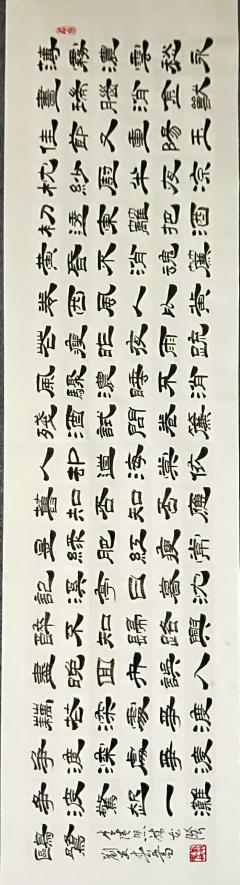 薄霧濃雲愁永
晝瑞腦消金獸
佳節又重陽玉
枕紗廚半夜涼
初透東離把酒
黃昏不消魂簾
卷西風人以黃
花瘦昨夜雨疏
風驟濃睡不消
殘酒試問卷簾
人卻道海棠依
舊知否知否應
是綠肥紅瘦常
記溪亭日暮沈
醉不知歸路興
盡晚回舟誤入
藕花深處爭渡
爭渡驚起一灘
鷗鷺